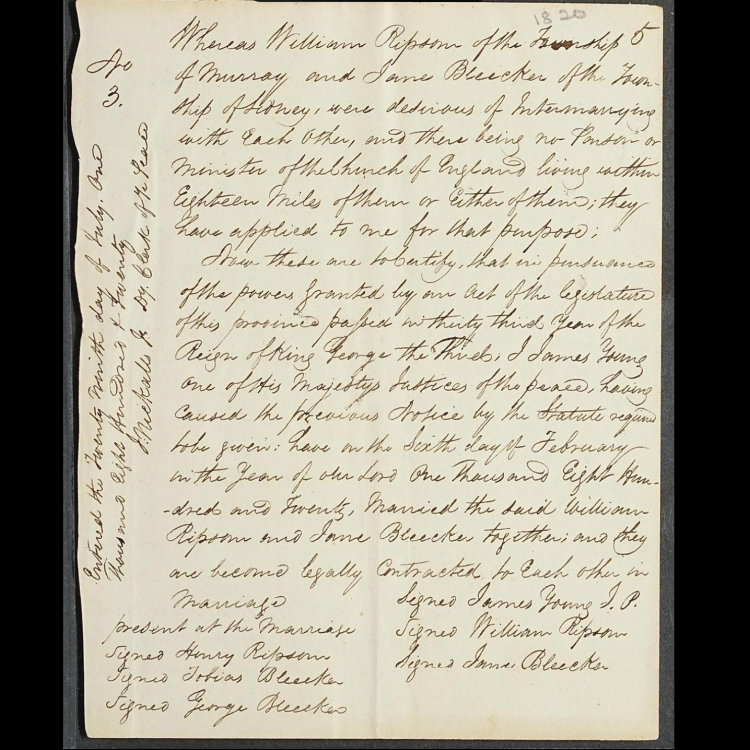 1820
5
Whereas William Ripsom of the Township
of Murray and Jane Bleecker of the Town-
ship of Sidney, were desirous of Intermarrying
with Each Other, and there being no Parson or
Minister of the Church of England living within
Eighteen Miles of them or Either of them; they
have applied to me for that purpose;
Now these are to Certify, that in pursuance
of the powers granted by an Act of the legislature
of this province passed in thirty third Year of the
Reign of King George the Third, I James Young
One of His Majestys Justices of the peace, having
Caused the previous Notice by the Statute required
to be given: have on the Sixth day of February
in the Year of our Lord One Thousand Eight Hun-
-dred and Twenty, Married the said William
Ripsom and Jane Bleecker together; and they
are become legally Contracted to Each other in
Marriage
Signed James Young J. P.
present at the Marriage
Signed William Ripsom
Signed Henry Ripsom
Signed Jane Bleecker
Signed Tobias Bleecker
Signed George Bleecker
No
3.
Entered the Twenty Ninth day of July. One
Thousand Eight Hundred & Twenty
J. Nickalls Jr Dy. Clerk of the Peace